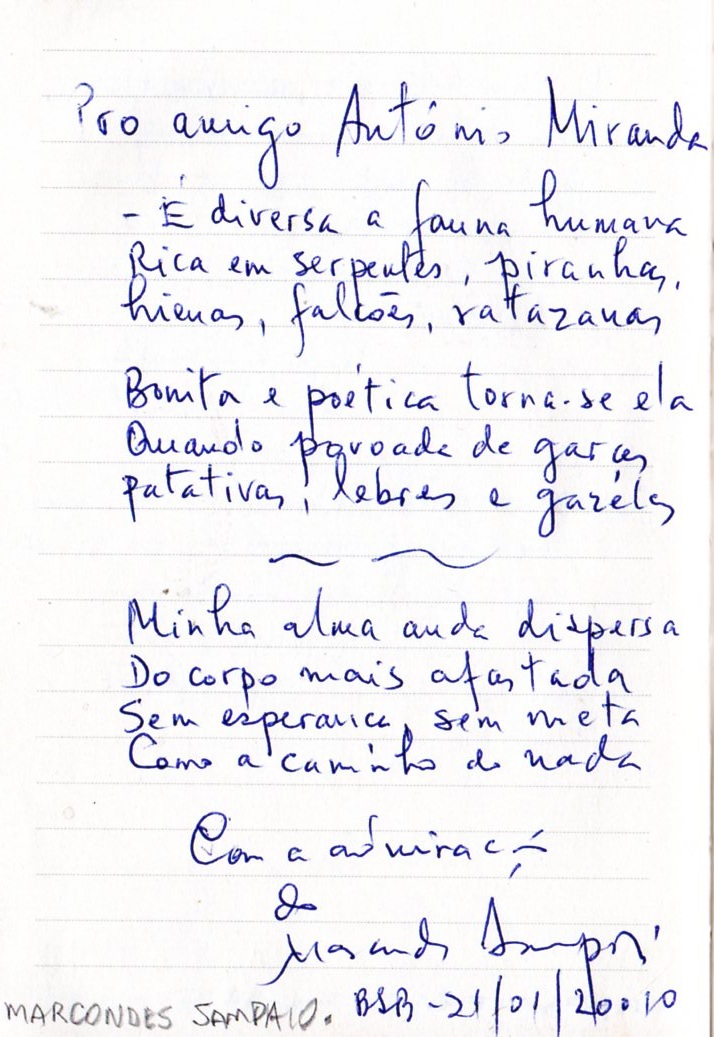 Pro amigo António Miranda
- É diversa a fauna humana
Rica em serpentes, piranhas,
hienas, falcões, ratazanas
Bonita e poética torna-se ela
Quando povoada de garças
patativas, lebres e gazélas
Minha alma anda dispersa
Do corpo mais afastada
Sem esperança, sem meta
Como a caminho do nada
Com a admiração
do
Marcondes Sampaio
MARCONDES SAMPAIO. BSB - 21/01/20010